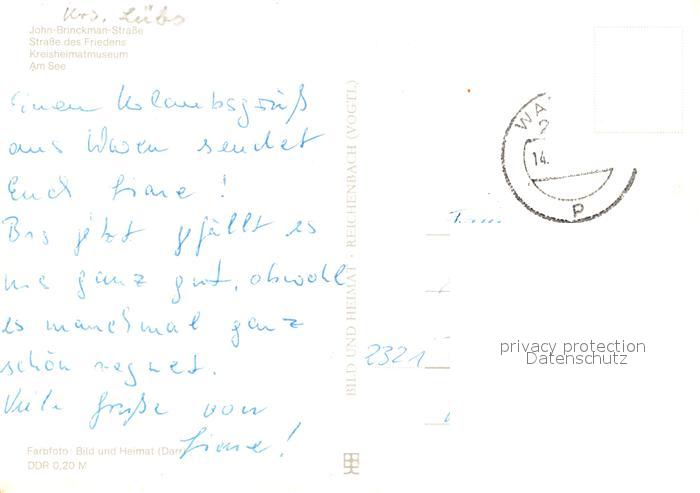 Krs. Lübz
John-Brinckman-Straße
Straße des Friedens
Kreisheimatmuseum
Am See
Einen Urlaubsgruß
aus Waren sendet
Euch Liane!
Bis jetzt gefällt es
uns ganz gut, obwohl
es manchmal ganz
schön regnet.
Viele Grüße von
Liane!
Farbfoto: Bild und Heimat
DDR 0,20 M
BILD UND HEIMAT · REICHENBACH (VOGTL)
WA
2
14.
P
2321
privacy protection
Datenschutz